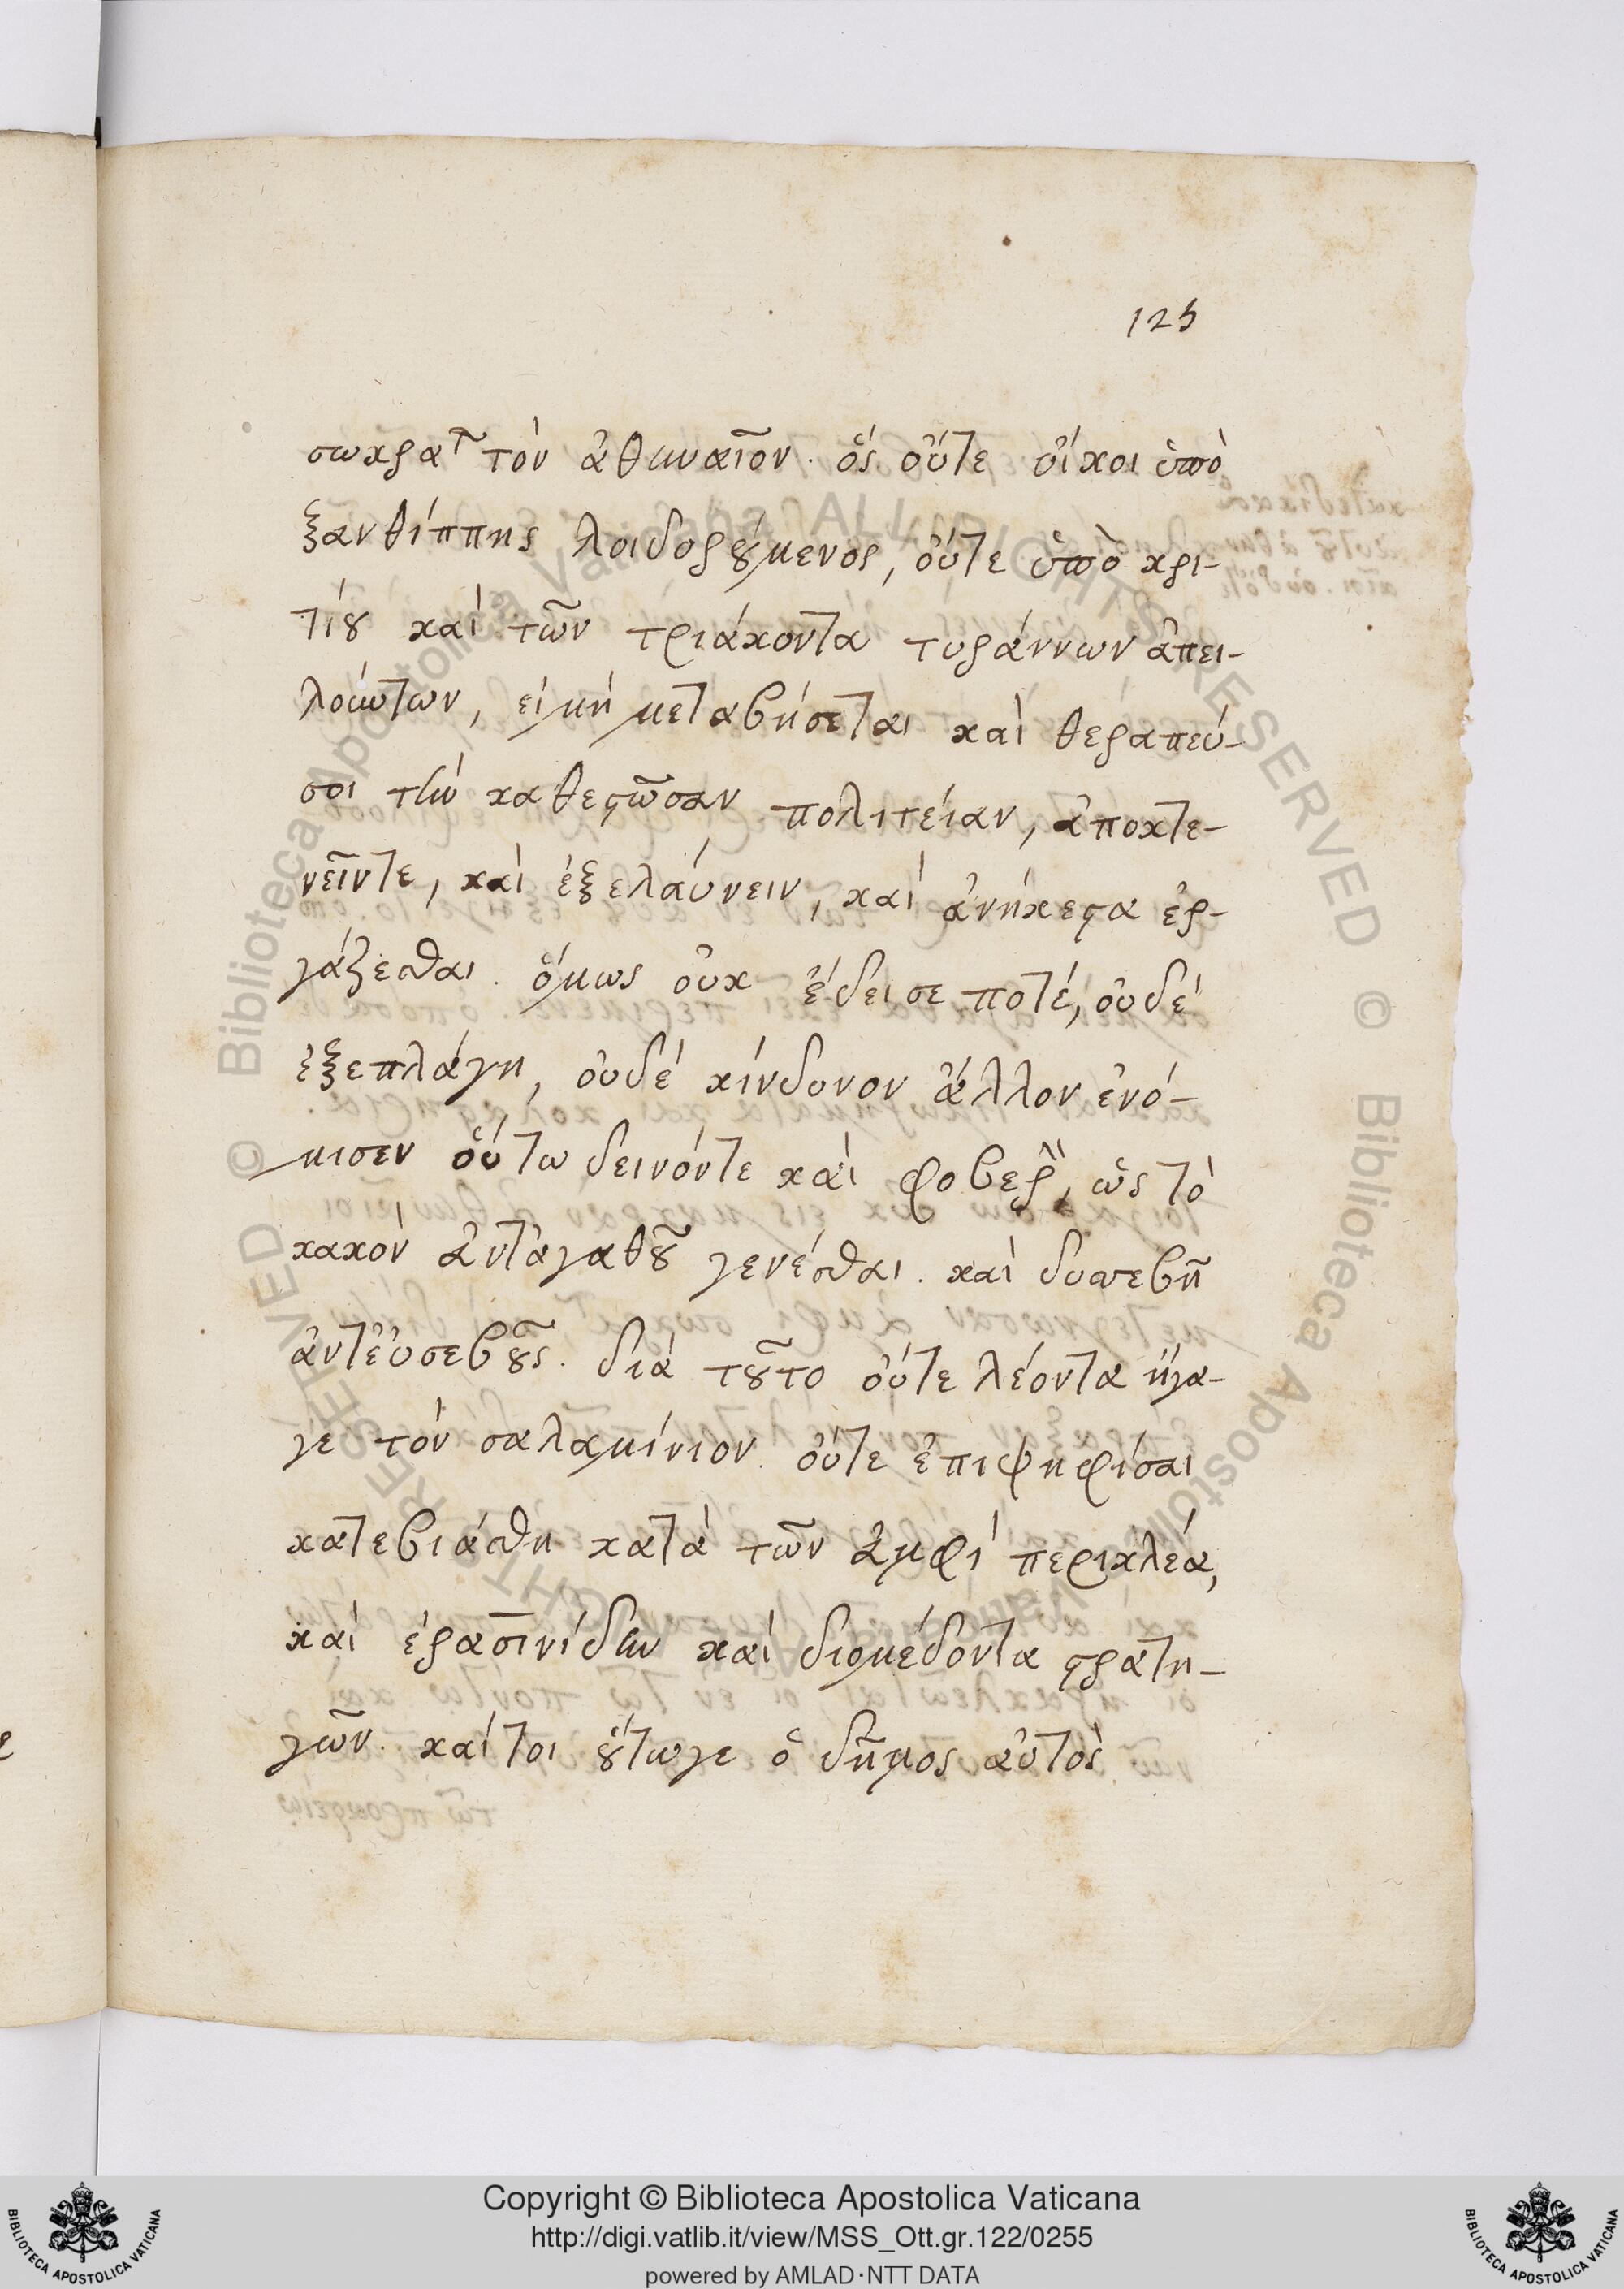 125
σωκρατ̃ τὸν ἀθηναῖον. ὅς οὔτε οἴκοι ὑπὸ
ξανθίππης λοιδορούμενος, οὔτε ὑπὸ κρι-
τίου καὶ τῶν τριάκοντα τυράννων ἀπει-
λούντων, εἰ μὴ μεταβήσεται καὶ θεραπεύ-
σοι τὴν καθεστῶσαν πολιτείαν, ἀποκτε-
νεῖντε, καὶ ἐξελαύνειν, καὶ ἀνήκεστα ἐρ-
γάζεσθαι. ὅμως οὐκ ἔδεισε ποτέ, οὐδέ
ἐξεπλάγη, οὐδέ κίνδυνον ἄλλον ἐνό-
μισεν οὕτω δεινόντε καὶ φοβερὸν, ὡς τὸ
κακόν ἀντἀγαθοῦ γενέσθαι. καὶ δυσσεβῆ
ἀντ᾽εὐσεβοῦς. διὰ τοῦτο οὔτε λέοντα ἤγα-
γε τὸν σαλαμίνιον. οὔτε ἐπιψηφίσαι
κατεβιάσθη κατὰ τῶν ἀμφὶ περικλέα,
καὶ ἐρασινίδην καὶ διομέδοντα στρατη-
γῶν. καίτοι οὕτωγε ὁ δῆμος αὐτὸς
Copyright © Biblioteca Apostolica Vaticana
http://digi.vatlib.it/view/MSS_Ott.gr.122/0255
powered by AMLAD·NTT DATA
BIBLIOTECA APOSTOLICA VATICANA
BIBLIOTECA APOSTOLICA VATICANA